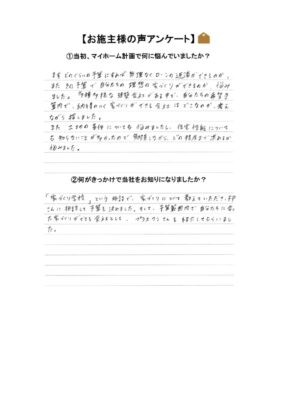 【お施主様の声アンケート】
①当初、マイホーム計画で何に悩んでいましたか?
まず どのくらいの予算にすれば 無理なくローンの返済ができるのか、
また その予算で 自分たちの 理想の家づくりができるのか 悩み
ました。多種多様な 建築会社がある中で、自分たちの希望予
算内で、納得のいく 家づくりができる会社は どこなのか、考え
ながら 探しました。
また 土地の条件についても 悩みましたし、住宅性能について
も 知らないことが多かったので 勉強しながら、どの程度まで求めるか
悩みました。
②何がきっかけで当社をお知りになりましたか?
「家づくり学校」という 施設で、家づくりについて 教えていただき、
さんに 相談して 予算を 決めました。そして、予算範囲内で 自分たちに合っ
た家づくりができる会社として、 さんを 紹介してもらいまし
た。